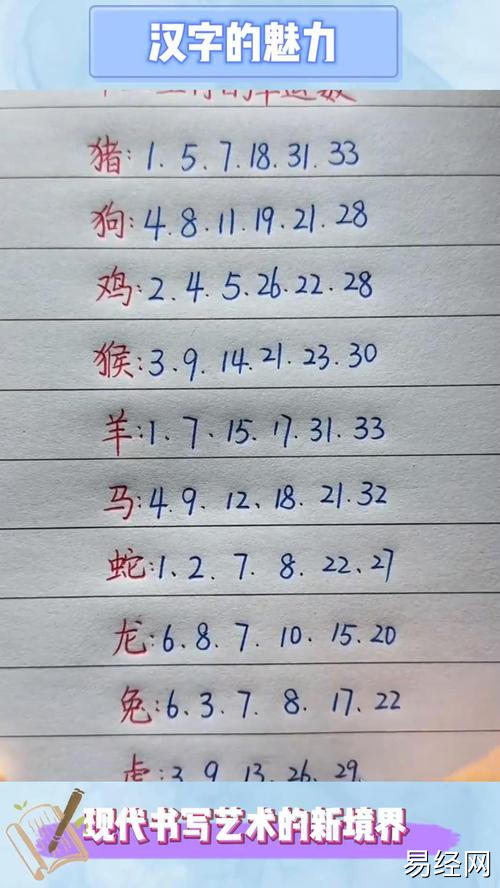 汉字的魅力
十二生肖的幸运数
猪:1.5.7.18.31.33
狗:4.8.11.19.21.28
鸡:2.4.5.26.22.28
猴:3.9.14.21.23.30
羊:1.7.15.17.31.33
马:4.9.12、18.21.32
蛇:1.2.7.8.22.27
龙:6.8.7.10.15.20
兔:6.3.7.8.17.22
虎:3.9.13.26.29
现代书写艺术的新境界
易经网